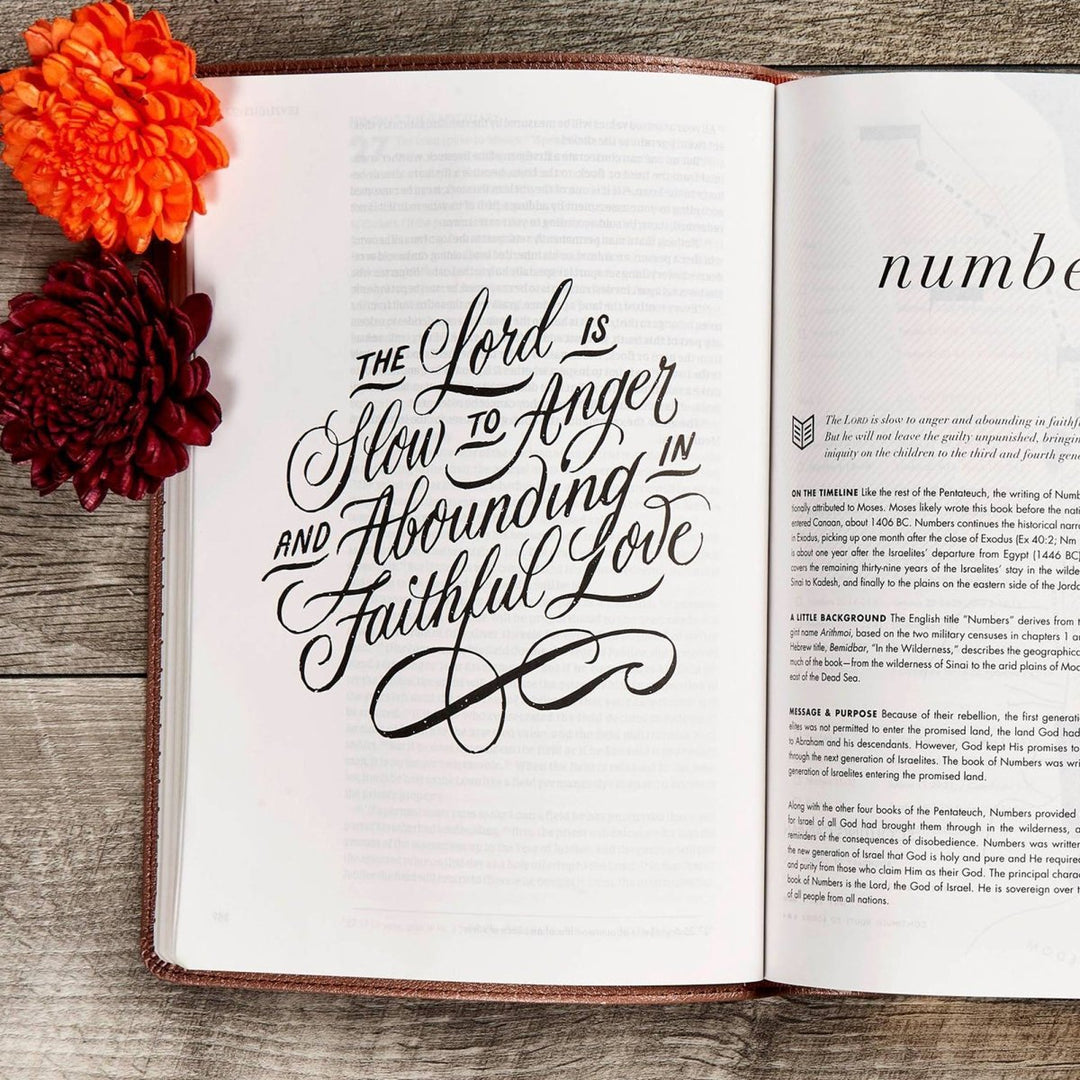 THE Lord IS
Slow TO Anger
AND Abounding IN
Faithful Love
numbe
The LORD is slow to anger and abounding in faithf
But he will not leave the guilty unpunished, bringin
iniquity on the children to the third and fourth gene
ON THE TIMELINE Like the rest of the Pentateuch, the writing of Numb
tionally attributed to Moses. Moses likely wrote this book before the nati
entered Canaan, about 1406 BC. Numbers continues the historical narra
in Exodus, picking up one month after the close of Exodus (Ex 40:2; Nm
is about one year after the Israelites' departure from Egypt (1446 BC)
covers the remaining thirty-nine years of the Israelites' stay in the wilde
Sinai to Kadesh, and finally to the plains on the eastern side of the Jorda
A LITTLE BACKGROUND The English title "Numbers" derives from
gint name Arithmoi, based on the two military censuses in chapters 1 a
Hebrew title, Bemidbar, "In the Wilderness," describes the geographica
much of the book—from the wilderness of Sinai to the arid plains of Moa
east of the Dead Sea.
MESSAGE & PURPOSE Because of their rebellion, the first generati
elites was not permitted to enter the promised land, the land God had
to Abraham and his descendants. However, God kept His promises to
through the next generation of Israelites. The book of Numbers was wri
generation of Israelites entering the promised land.
Along with the other four books of the Pentateuch, Numbers provided
for Israel of all God had brought them through in the wilderness, a
reminders of the consequences of disobedience. Numbers was written
the new generation of Israel that God is holy and pure and He require
and purity from those who claim Him as their God. The principal chara
book of Numbers is the Lord, the God of Israel. He is sovereign over
of all people from all nations.